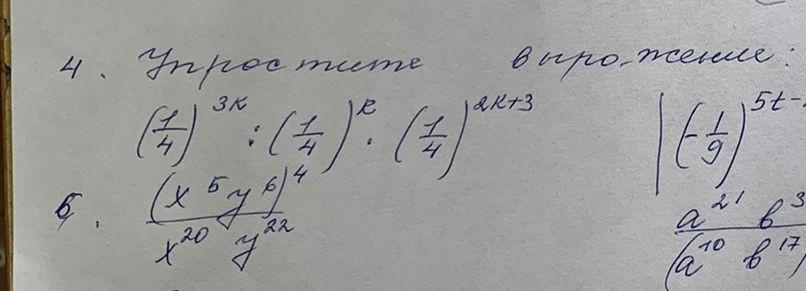 4. Упростите выражение:
(1/4)^3k : (1/4)^k · (1/4)^2k+3 | (-1/9)^5t-
6. (x^5 y^6)^4 / x^20 y^22 a^21 b^3 / (a^10 b^17)